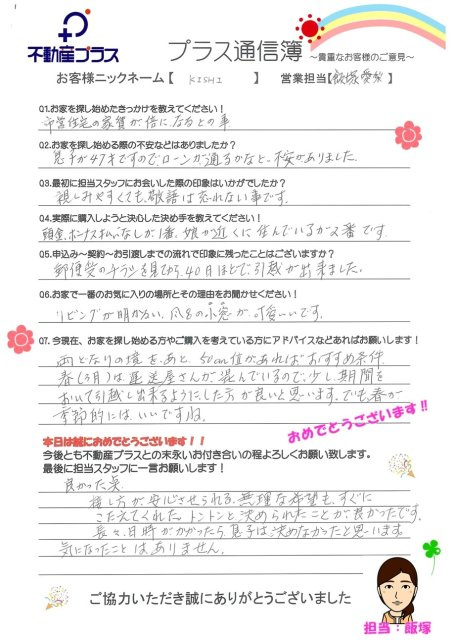 不動産プラス
プラス通信簿 ～貴重なお客様のご意見～
お客様ニックネーム【 KISHI 】 営業担当【飯塚愛梨】
Q1.お家を探し始めたきっかけを教えてください!
市営住宅の家賃が倍になるとの事
Q2.お家を探し始める際の不安などはありましたか?
息子が47才ですのでローンが通るかなと、不安がありました。
Q3.最初に担当スタッフにお会いした際の印象はいかがでしたか?
親しみやすくても、敬語は忘れない事です。
Q4.実際に購入しようと決心した決め手を教えてください!
頭金、ボーナス払いなしが1番、娘が近くに住んでいるが2番です。
Q5.申込み～契約～お引渡しまでの流れで印象に残ったことはございますか?
郵便受のチラシを見てから、40日ほどで引越が出来ました。
Q6.お家で一番のお気に入りの場所とその理由をお聞かせください!
リビングが明かるい、風呂の小窓が、可愛いいです。
Q7.今現在、お家を探し始める方やご購入を考えている方にアドバイスなどあればお願いします!
両となりの境を、あと、50cm位があればおすすめ条件
春(3月)は運送屋さんが混んでいるので、少し期間を
おいて引越し出来るようにした方が良いと思います。でも春が
季節的には、いいですね。
おめでとうございます!!
本日は誠におめでとうございます!!
今後とも不動産プラスとの末永いお付き合いの程よろしくお願い致します。
最後に担当スタッフに一言お願いします!
良かった点
接し方が安心させられる、無理な希望も、すぐに
こたえてくれた。トントンと決められたことが良かったです。
長々、日時がかかったら息子は決めなかったと思います。
気になったことは、ありません。
ご協力いただき誠にありがとうございました
担当:飯塚